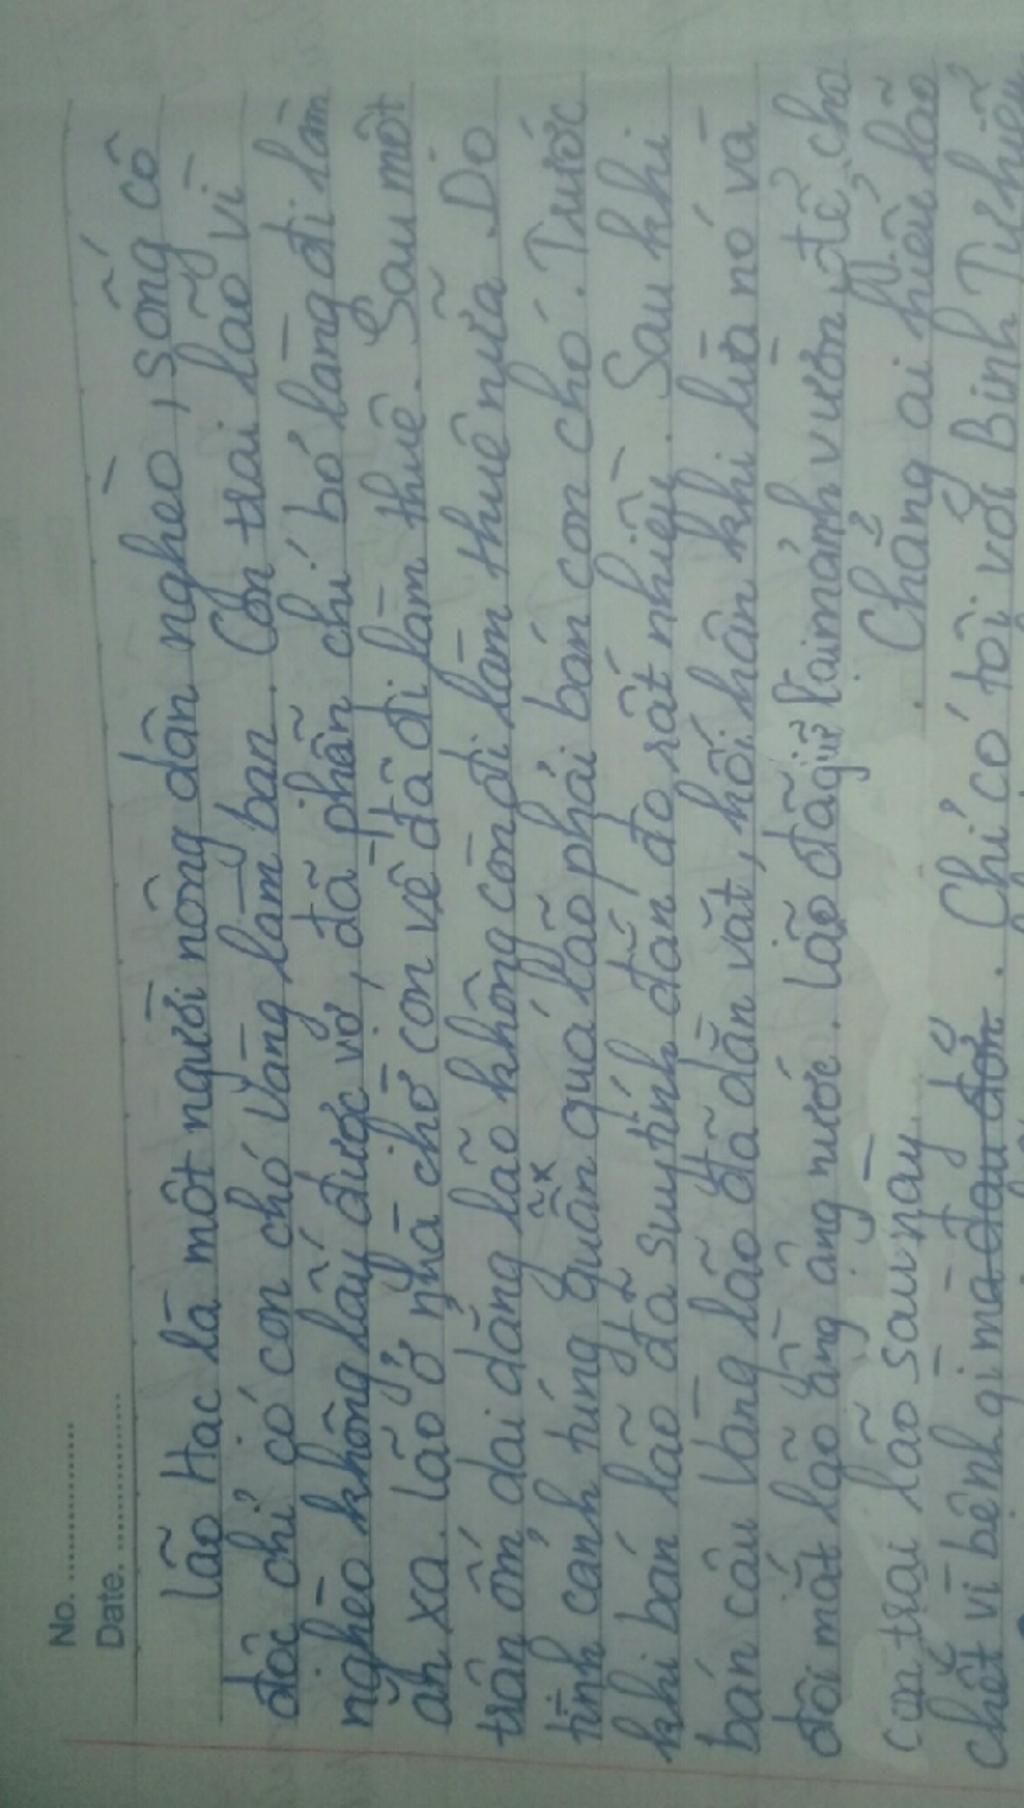 No. ............
Date. ............
Lão Hạc là một người nông dân nghèo, sống cô
độc chỉ có con chó Vàng làm bạn. Con trai lão vì
nghèo không lấy được vợ, đã phẫn chí bỏ làng đi làm
ăn xa. Lão ở nhà chờ con về đã đi làm thuê. Sau một
trận ốm dai dẳng lão không còn đi làm thuê nữa. Do
tình cảnh túng quẫn quá lão phải bán con chó. Trước
khi bán lão đã suy tính đắn đo rất nhiều. Sau khi
bán cậu Vàng lão đã dằn vặt, hối hận khi lừa nó và
đôi mắt lão ầng ậng nước. Lão đã giữ lại mảnh vườn để cho
con trai lão sau này. Chẳng ai hiểu lão
chết vì bệnh gì mà đau đớn. Chỉ có tôi với Binh Tư hiểu